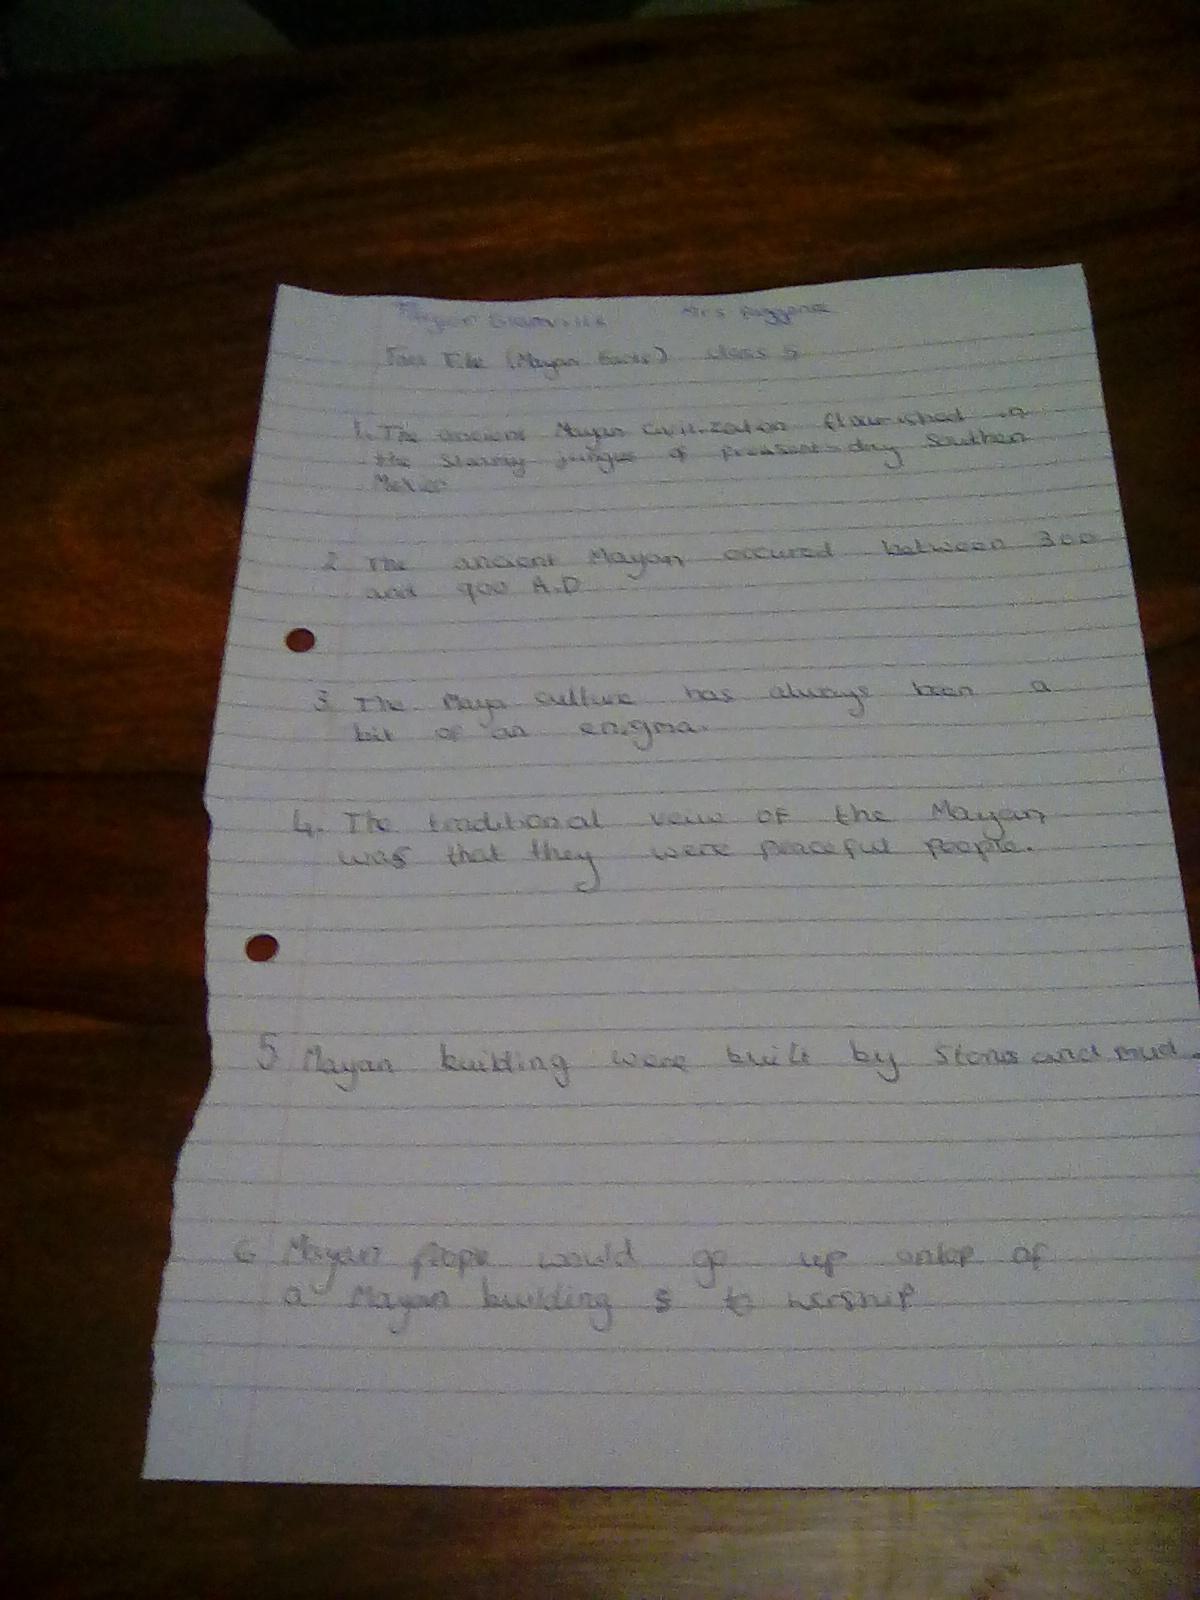 Mrs
Fact File (Mayan Facts) Class 5
1. The ancient Mayan civilization flourished in
the steamy jungles of present-day Southern
Mexico
2 The ancient Mayan occured between 300
and 900 A.D
3 The Maya culture has always been a
bit of an enigma.
4. The traditional veiw of the Mayan
was that they were peaceful people.
5 Mayan building were built by Stons and mud.
6 Mayan peope would go up ontop of
a Mayan building s to worship